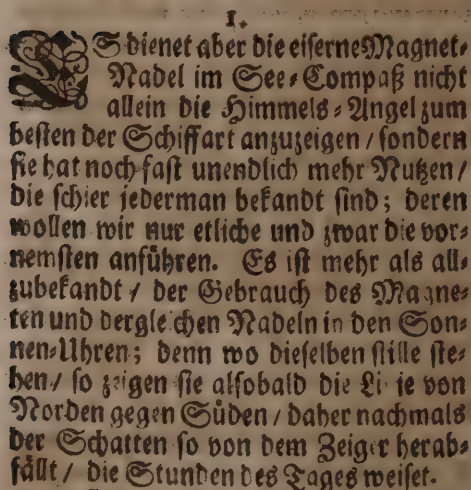 I.
ES dienet aber die eiserne Magnet-
Nadel im See-Compaß nicht
allein die Himmels-Angel zum
besten der Schiffart anzuzeigen / sondern
sie hat noch fast unendlich mehr Nutzen /
die schier jederman bekandt sind; deren
wollen wir nur etliche und zwar die vor-
nemsten anführen. Es ist mehr als all-
zubekandt / der Gebrauch des Magne-
ten und dergleichen Nadeln in den Son-
nen-Uhren; denn wo dieselben stille ste-
hen / so zeigen sie alsobald die Linie von
Norden gegen Süden / daher nachmals
der Schatten so von dem Zeiger herab-
fällt / die Stunden des Tages weiset.